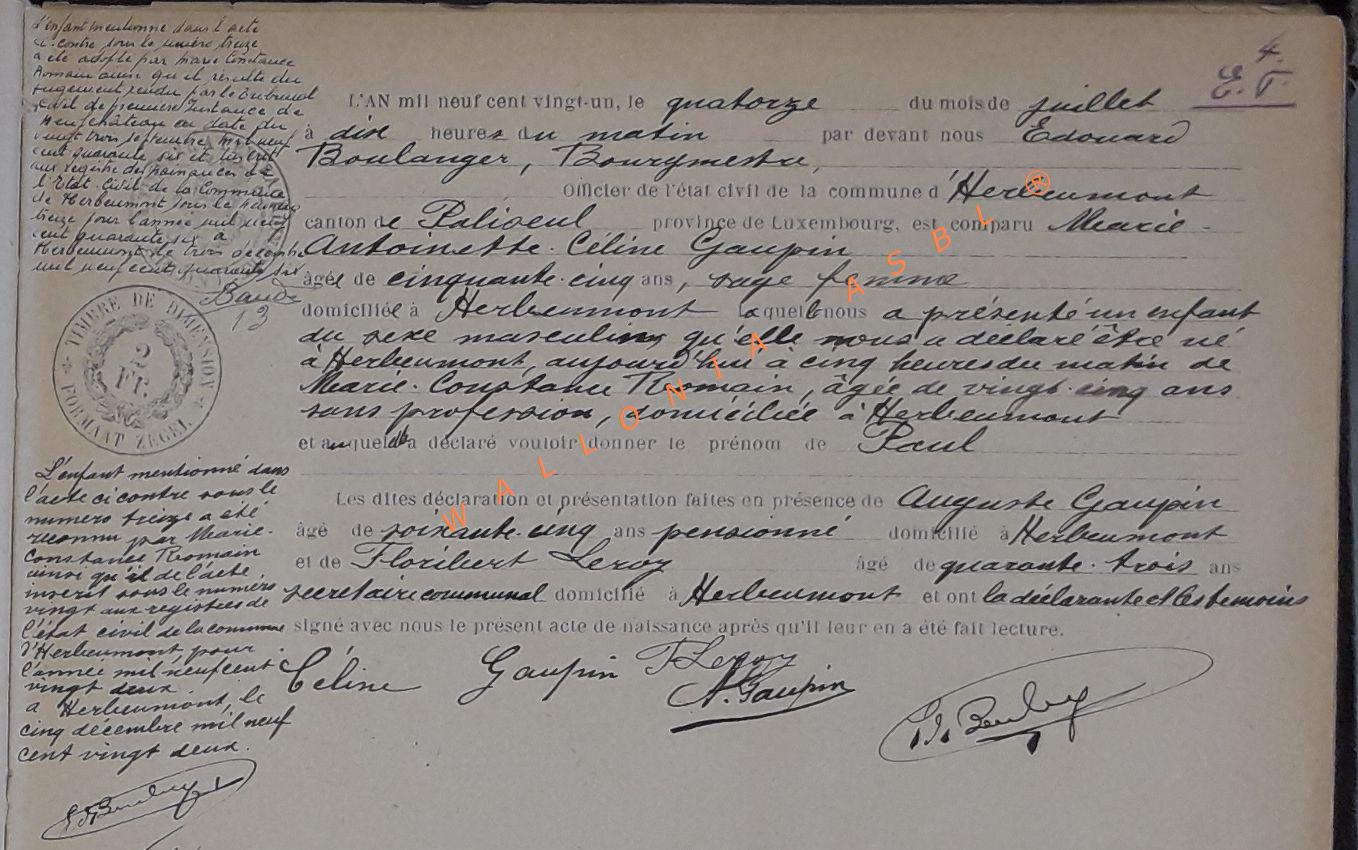 L'enfant mentionné dans l'acte
ci-contre sous le numéro treize
a été adopté par Marie Constance
Romain ainsi qu'il résulte du
jugement rendu par le tribunal
civil de première Instance de
Neufchâteau en date du
vingt trois septembre mil neuf
cent quarante six et inscrit
aux registre des naissances de
l'Etat-Civil de la Commune
de Herbeumont sous le numéro
treize pour l'année mil neuf
cent quarante six a
Herbeumont le trois décembre
mil neuf cent quarante six
13
TIMBRE DE DIMENSION
2
FR.
FORMAAT ZEGEL
L'enfant mentionné dans
l'acte ci contre sous le
numéro treize a été
reconnu par Marie-
Constance Romain
ainsi qu'il de l'acte
inscrit sous le numéro
vingt aux registres de
l'état civil de la commune
d'Herbeumont, pour
l'année mil neuf cent
vingt deux.
a Herbeumont, le
cinq décembre mil neuf
cent vingt deux.
4.
E. P.
L'AN mil neuf cent vingt-un, le quatorze du mois de juillet
à dix heures du matin par devant nous Edouard
Boulanger, Bourgmestre,
Officier de l'état civil de la commune d'Herbeumont
canton de Paliseul province de Luxembourg, est comparu Marie-
Antoinette-Céline Gaupin
âgée de cinquante-cinq ans, sage femme
domiciliée à Herbeumont laquelle nous a présenté un enfant
du sexe masculin qu'elle nous a déclaré être né
à Herbeumont, aujourd'hui à cinq heures du matin de
Marie-Constance Romain, âgée de vingt-cinq ans
sans profession, domiciliée à Herbeumont
et auquel elle a déclaré vouloir donner le prénom de Paul
Les dites déclaration et présentation faites en présence de Auguste Gaupin
âgé de soixante-cinq ans pensionné domicilié à Herbeumont
et de Floribert Leroy âgé de quarante-trois ans
secrétaire communal domicilié à Herbeumont et ont la déclarante et les témoins
signé avec nous le présent acte de naissance après qu'il leur en a été fait lecture.
Céline Gaupin F. Leroy
A. Gaupin
WALLONIA ASBL ®